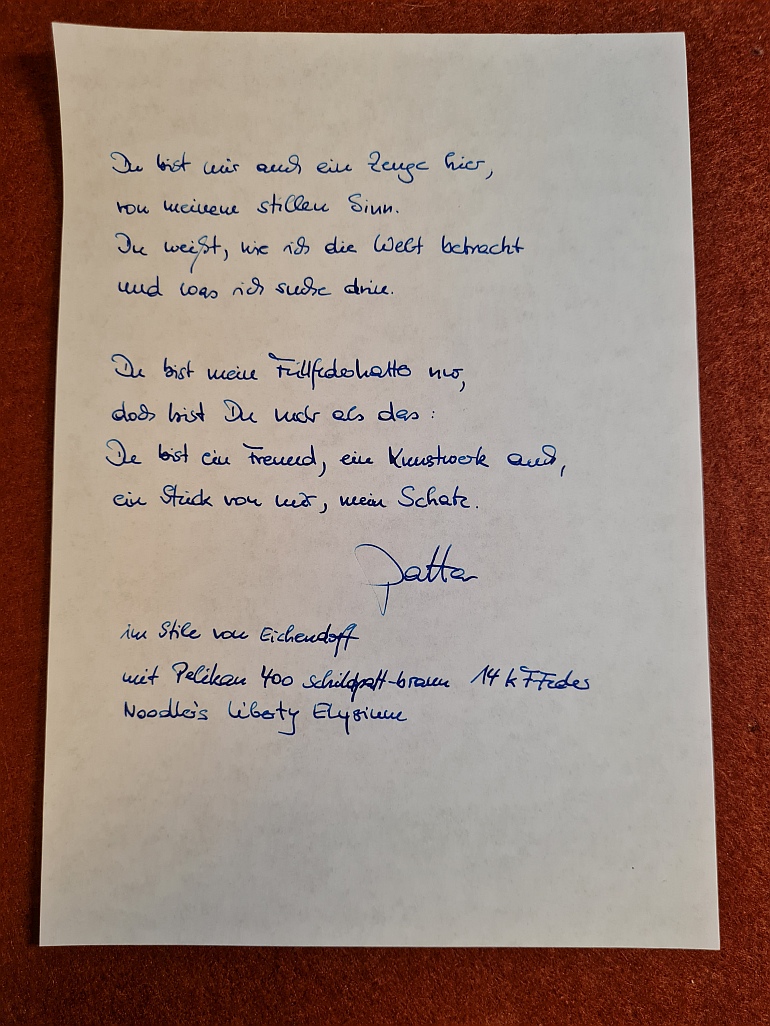 Du bist mir auch ein Zeuge hier,
von meinem stillen Sinn.
Du weißt, wie ich die Welt betracht
und was ich suche drin.
Du bist mein Füllfederhalter nur,
doch bist Du mehr als das:
Du bist ein Freund, ein Kunstwerk auch,
ein Stück von mir, mein Schatz.
im Stile von Eichendorff
mit Pelikan 400 schildpatt-braun 14 k F Feder
Noodler's Liberty Elysium